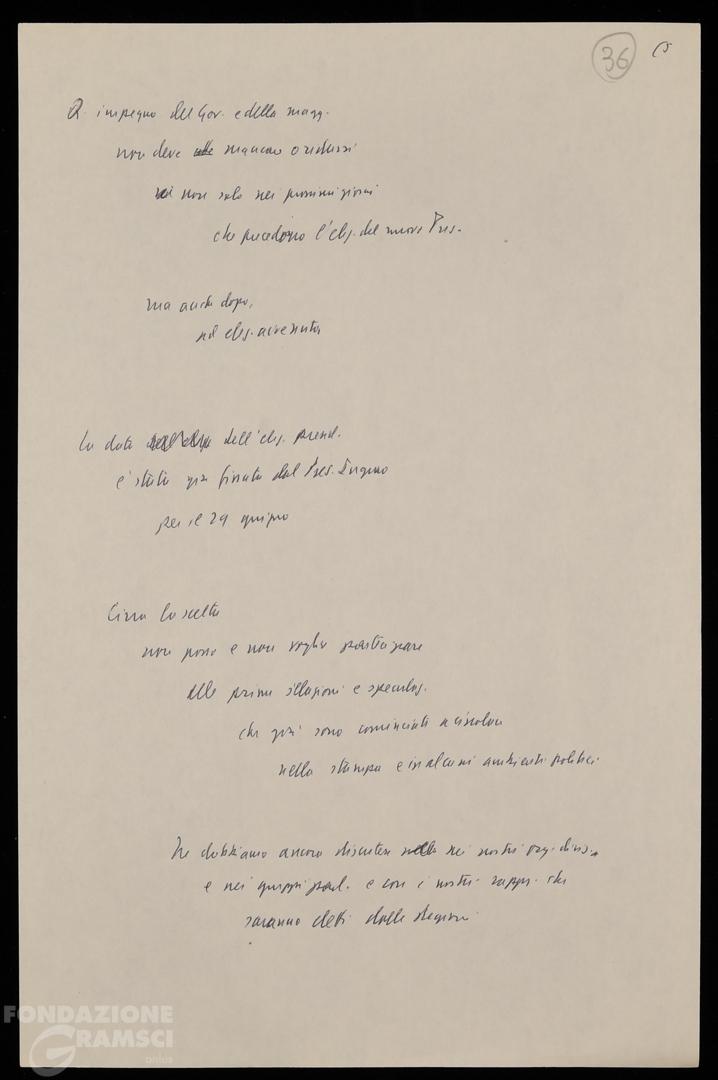 36
Q. impegno del Gov. e della magg.
non deve mancare o ridursi
non solo nei prossimi giorni
che precedono l'elez. del nuovo Pres.
ma anche dopo,
ad elez. avvenuta
La data dell'elez. presid.
è stata già fissata dal Pres. Ingrao
per il 29 giugno
Circa la scelta
non posso e non voglio partecipare
alle prime illazioni e speculaz.
che già sono cominciate a circolare
nella stampa e in alcuni ambienti politici
Ne dobbiamo ancora discutere nei nostri org. dirig.
e nei gruppi parl. e con i nostri rappr. che
saranno eletti dalle Regioni.
FONDAZIONE
GRAMSCI
onlus